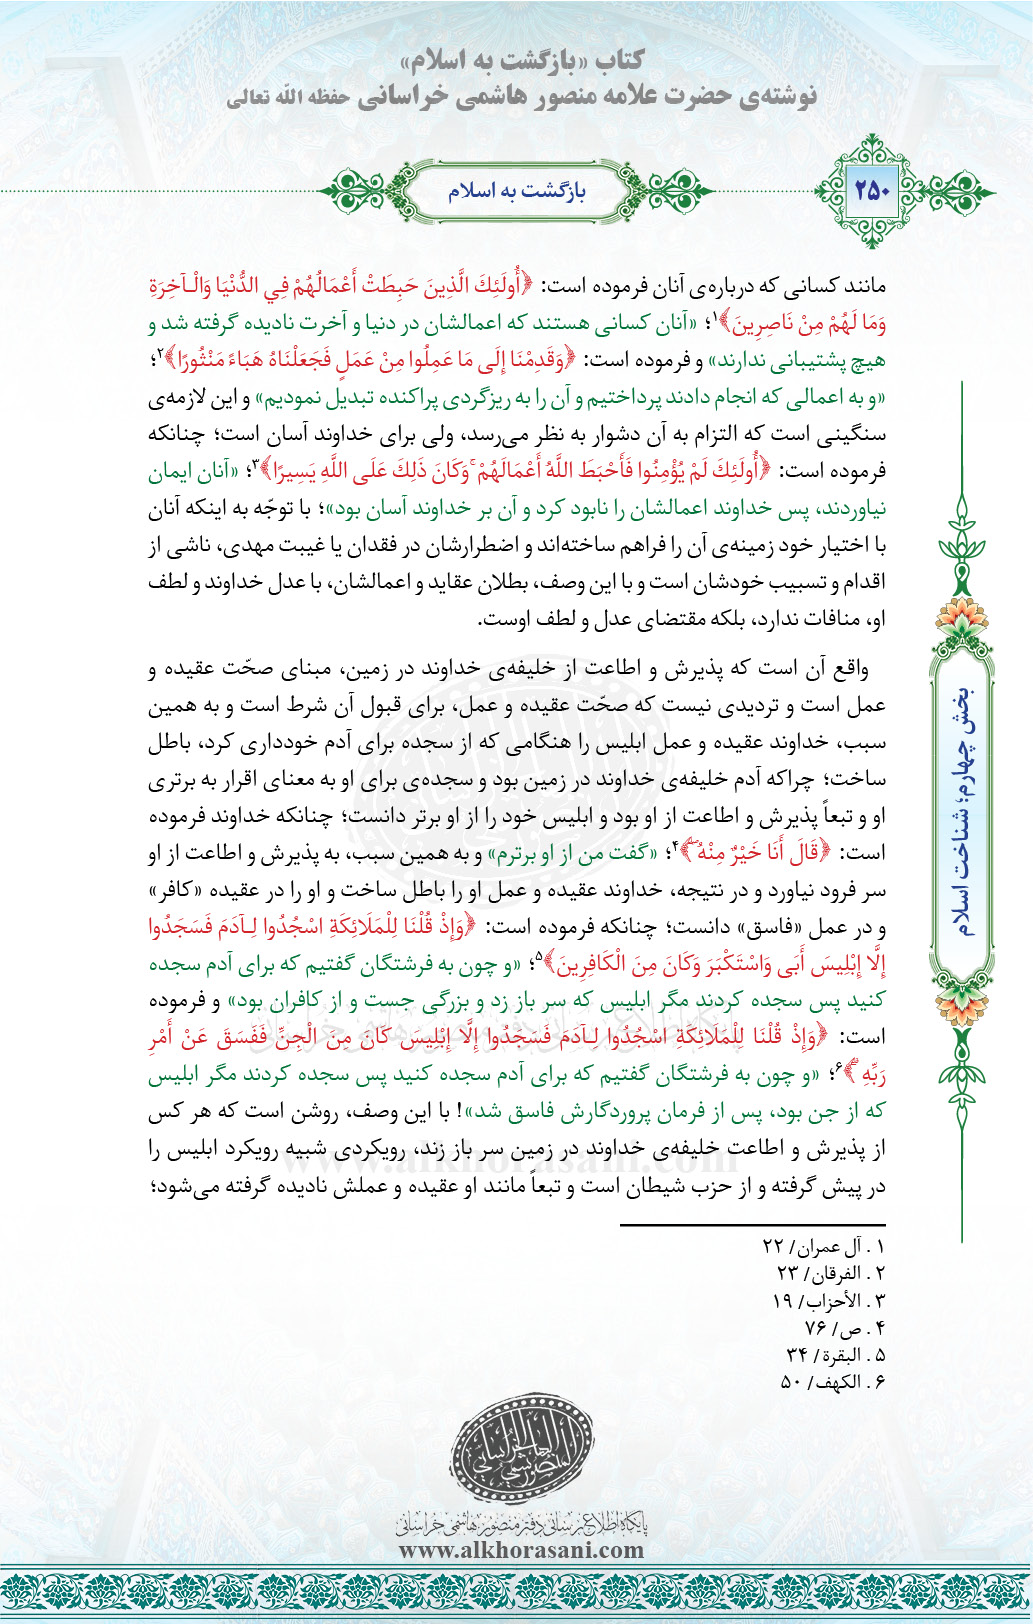 کتاب «بازگشت به اسلام»
نوشته‌ی حضرت علامه منصور هاشمی خراسانی حفظه الله تعالی
بازگشت به اسلام
۲۵۰
مانند کسانی که درباره‌ی آنان فرموده است: ﴿أُولَئِكَ الَّذِينَ حَبِطَتْ أَعْمَالُهُمْ فِي الدُّنْيَا وَالْآخِرَةِ
وَمَا لَهُمْ مِنْ نَاصِرِينَ﴾۱؛ «آنان کسانی هستند که اعمالشان در دنیا و آخرت نادیده گرفته شد و
هیچ پشتیبانی ندارند» و فرموده است: ﴿وَقَدِمْنَا إِلَى مَا عَمِلُوا مِنْ عَمَلٍ فَجَعَلْنَاهُ هَبَاءً مَنْثُورًا﴾۲؛
«و به اعمالی که انجام دادند پرداختیم و آن را به ریزگردی پراکنده تبدیل نمودیم» و این لازمه‌ی
سنگینی است که التزام به آن دشوار به نظر می‌رسد، ولی برای خداوند آسان است؛ چنانکه
فرموده است: ﴿أُولَئِكَ لَمْ يُؤْمِنُوا فَأَحْبَطَ اللَّهُ أَعْمَالَهُمْ ۚ وَكَانَ ذَلِكَ عَلَى اللَّهِ يَسِيرًا﴾۳؛ «آنان ایمان
نیاوردند، پس خداوند اعمالشان را نابود کرد و آن بر خداوند آسان بود»؛ با توجّه به اینکه آنان
با اختیار خود زمینه‌ی آن را فراهم ساخته‌اند و اضطرارشان در فقدان یا غیبت مهدی، ناشی از
اقدام و تسبیب خودشان است و با این وصف، بطلان عقاید و اعمالشان، با عدل خداوند و لطف
او، منافات ندارد، بلکه مقتضای عدل و لطف اوست.
واقع آن است که پذیرش و اطاعت از خلیفه‌ی خداوند در زمین، مبنای صحّت عقیده و
عمل است و تردیدی نیست که صحّت عقیده و عمل، برای قبول آن شرط است و به همین
سبب، خداوند عقیده و عمل ابلیس را هنگامی که از سجده برای آدم خودداری کرد، باطل
ساخت؛ چراکه آدم خلیفه‌ی خداوند در زمین بود و سجده‌ی برای او به معنای اقرار به برتری
او و تبعاً پذیرش و اطاعت از او بود و ابلیس خود را از او برتر دانست؛ چنانکه خداوند فرموده
است: ﴿قَالَ أَنَا خَيْرٌ مِنْهُ ۖ﴾۴؛ «گفت من از او برترم» و به همین سبب، به پذیرش و اطاعت از او
سر فرود نیاورد و در نتیجه، خداوند عقیده و عمل او را باطل ساخت و او را در عقیده «کافر»
و در عمل «فاسق» دانست؛ چنانکه فرموده است: ﴿وَإِذْ قُلْنَا لِلْمَلَائِكَةِ اسْجُدُوا لِآدَمَ فَسَجَدُوا
إِلَّا إِبْلِيسَ أَبَى وَاسْتَكْبَرَ وَكَانَ مِنَ الْكَافِرِينَ﴾۵؛ «و چون به فرشتگان گفتیم که برای آدم سجده
کنید پس سجده کردند مگر ابلیس که سر باز زد و بزرگی جست و از کافران بود» و فرموده
است: ﴿وَإِذْ قُلْنَا لِلْمَلَائِكَةِ اسْجُدُوا لِآدَمَ فَسَجَدُوا إِلَّا إِبْلِيسَ كَانَ مِنَ الْجِنِّ فَفَسَقَ عَنْ أَمْرِ
رَبِّهِ ۗ﴾۶؛ «و چون به فرشتگان گفتیم که برای آدم سجده کنید پس سجده کردند مگر ابلیس
که از جن بود، پس از فرمان پروردگارش فاسق شد»! با این وصف، روشن است که هر کس
از پذیرش و اطاعت خلیفه‌ی خداوند در زمین سر باز زند، رویکردی شبیه رویکرد ابلیس را
در پیش گرفته و از حزب شیطان است و تبعاً مانند او عقیده و عملش نادیده گرفته می‌شود؛
بخش چهارم؛ شناخت اسلام
۱ . آل عمران/ ۲۲
۲ . الفرقان/ ۲۳
۳ . الأحزاب/ ۱۹
۴ . ص/ ۷۶
۵ . البقرة/ ۳۴
۶ . الكهف/ ۵۰
المنصور الهاشمي الخراساني
پایگاه اطلاع‌رسانی دفتر منصور هاشمی خراسانی
www.alkhorasani.com